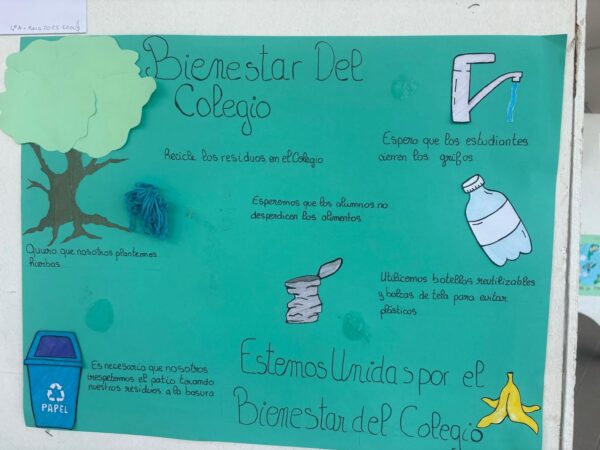 Bienestar Del
Colegio
Recicle los residuos en el Colegio
Espero que los estudiantes
cierren los grifos
Esperemos que los alumnos no
desperdicen los alimentos
Quiero que nosotros plantemos
hierbas
Utilicemos botellas reutilizables
y bolsas de tela para evitar
plásticos
Es necesario que nosotros
respetemos el patio tirando
nuestros residuos a la basura
PAPEL
Estemos Unidas por el
Bienestar del Colegio